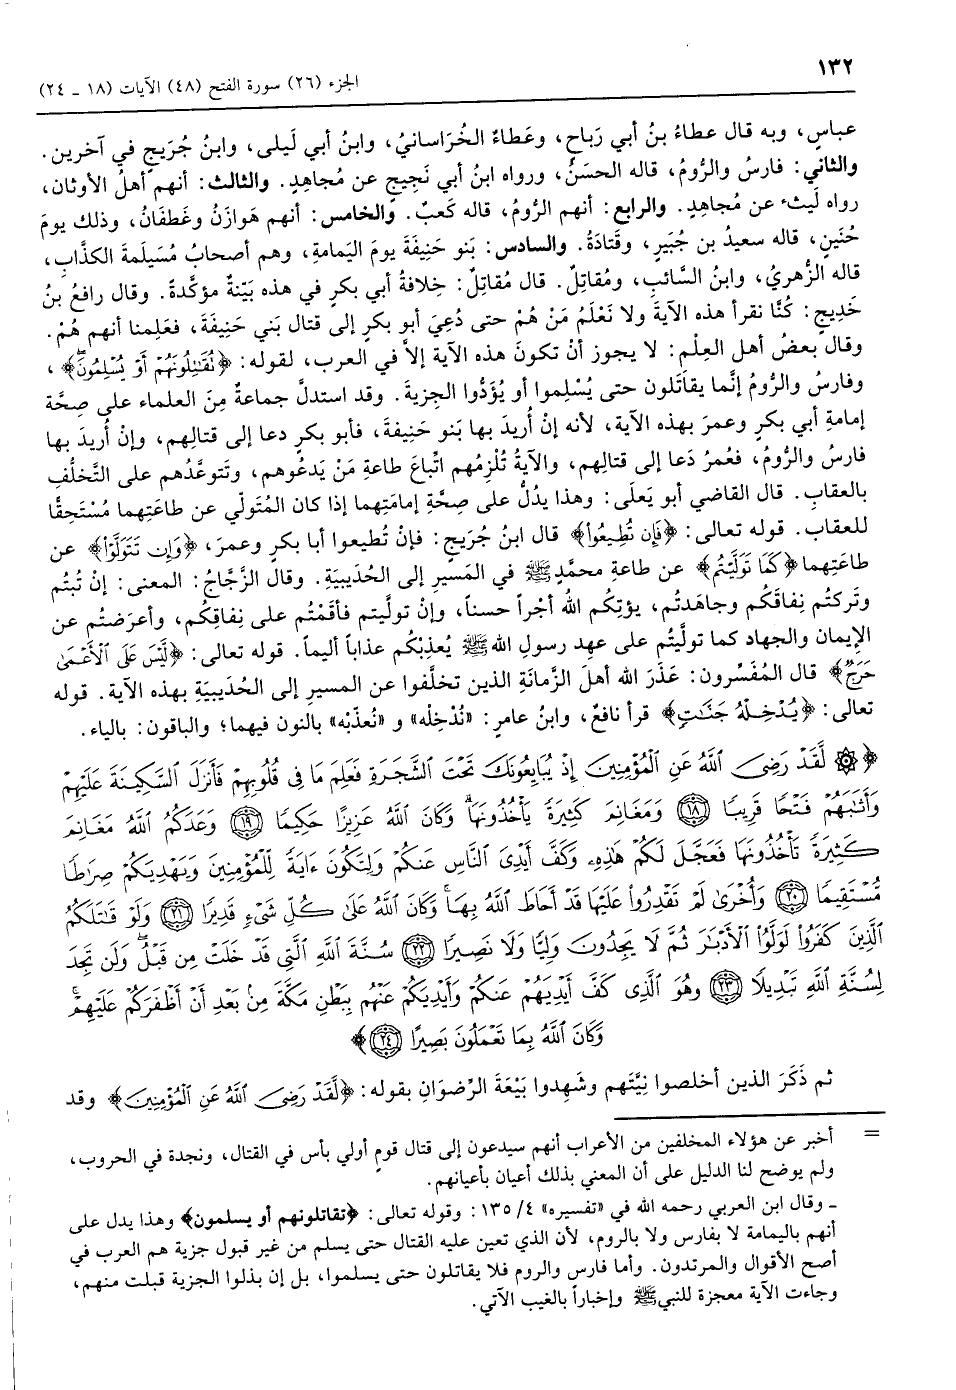 ١٣٢
الجزء (٢٦) سورة الفتح (٤٨) الآيات (١٨ ـ ٢٤)
عباسٍ، وبه قال عطاءُ بنُ أبي رَباحٍ، وعَطاءٌ الخُرَاسانيُ، وابنُ أبي لَيلى، وابنُ جُرَيجٍ في آخرين.
والثاني: فارسُ والرُّومُ، قاله الحسَنُ، ورواه ابنُ أبي نَجيحٍ عن مُجاهدٍ. والثالث: أنهم أهلُ الأوثان،
رواه لَيثٌ عن مُجاهدٍ. والرابع: أنهم الرُّومُ، قاله كَعبٌ. والخامس: أنهم هَوازنُ وغَطفَانُ، وذلك يومَ
حُنَينٍ، قاله سعيدُ بن جُبَيرٍ، وقَتادَةُ. والسادس: بَنو حَنِيفَةَ يومَ اليَمامةِ، وهم أصحابُ مُسَيلمةَ الكذَّابِ،
قاله الزُّهريُ، وابنُ السَّائبِ، ومُقاتِلٌ. قال مُقاتِلٌ: خِلافةُ أبي بكرٍ في هذه بَيّنةٌ مؤكَّدةً. وقال رافعُ بنُ
خَدِيجٍ: كُنَّا نقرأ هذه الآيةَ ولا نَعْلَمُ مَنْ هُمْ حتى دُعِيَ أبو بكرٍ إلى قتال بَني حَنِيفَةَ، فعَلِمنا أنهم هُمْ.
وقال بعضُ أهل العِلْمِ: لا يجوز أنْ تكونَ هذه الآية إلاَّ في العرب، لقوله: ﴿نُقَٰتِلُونَهُمۡ أَوۡ يُسۡلِمُونَۖ﴾،
وفارسُ والرُّومُ إنَّما يقاتَلون حتى يُسْلِموا أو يُؤَدُّوا الجِزيةَ. وقد استدلَّ جماعةٌ مِنَ العلماء على صِحَّة
إمامةِ أبي بكرٍ وعمرَ بهذه الآية، لأنه إنْ أُريدَ بها بَنو حَنيفةَ، فأبو بكرٍ دعا إلى قتالِهم، وإنْ أُريدَ بها
فارسُ والرُّومُ، فعُمرُ دَعا إلى قتالِهم، والآيةُ تُلْزِمُهم اتِّباعَ طاعةِ مَنْ يَدعُوهم، وتَتوعَّدُهم على التَّخلُّفِ
بالعقابِ. قال القاضي أبو يَعلَى: وهذا يدُلُّ على صِحَّةِ إمامَتِهما إذا كان المُتَولّي عن طاعَتِهما مُسْتَحِقًّا
للعقاب. قوله تعالى: ﴿فَإِن تُطِيعُواْ﴾ قال ابنُ جُرَيجٍ: فإنْ تُطيعوا أبا بكرٍ وعمرَ، ﴿وَإِن تَتَوَلَّوۡاْ﴾ عن
طاعَتِهما ﴿كَمَا تَوَلَّيۡتُم﴾ عن طاعةِ محمَّدٍ ﷺ في المَسيرِ إلى الحُدَيبيَةِ. وقال الزَّجَّاجُ: المعنى: إنْ تُبتُم
وتَركتُم نِفاقَكُم وجاهَدتُم، يؤتِكُم اللهُ أجْراً حسناً، وإنْ تولَّيتم فأقَمْتُم على نِفاقِكُم، وأعرَضتُم عن
الإيمان والجهاد كما تولَّيتُم على عهدِ رسولِ الله ﷺ يُعذِبْكُم عذاباً أليماً. قوله تعالى: ﴿لَّيۡسَ عَلَى ٱلۡأَعۡمَىٰ
حَرَجٌ﴾ قال المُفَسِّرون: عَذَرَ الله أهلَ الزَّمانَةِ الذين تخلَّفوا عن المسيرِ إلى الحُدَيبيَةِ بهذه الآية. قوله
تعالى: ﴿يُدۡخِلۡهُ جَنَّٰتٖ﴾ قرأ نافعٌ، وابنُ عامرٍ: «نُدْخِلْه» و «نُعذّبْه» بالنون فيهما؛ والباقون: بالياء.
﴿۞ لَّقَدۡ رَضِيَ ٱللَّهُ عَنِ ٱلۡمُؤۡمِنِينَ إِذۡ يُبَايِعُونَكَ تَحۡتَ ٱلشَّجَرَةِ فَعَلِمَ مَا فِي قُلُوبِهِمۡ فَأَنزَلَ ٱلسَّكِينَةَ عَلَيۡهِمۡ
وَأَثَٰبَهُمۡ فَتۡحٗا قَرِيبٗا ١٨ وَمَغَانِمَ كَثِيرَةٗ يَأۡخُذُونَهَاۗ وَكَانَ ٱللَّهُ عَزِيزًا حَكِيمٗا ١٩ وَعَدَكُمُ ٱللَّهُ مَغَانِمَ
كَثِيرَةٗ تَأۡخُذُونَهَا فَعَجَّلَ لَكُمۡ هَٰذِهِۦ وَكَفَّ أَيۡدِيَ ٱلنَّاسِ عَنكُمۡ وَلِتَكُونَ ءَايَةٗ لِّلۡمُؤۡمِنِينَ وَيَهۡدِيَكُمۡ صِرَٰطٗا
مُّسۡتَقِيمٗا ٢٠ وَأُخۡرَىٰ لَمۡ تَقۡدِرُواْ عَلَيۡهَا قَدۡ أَحَاطَ ٱللَّهُ بِهَاۚ وَكَانَ ٱللَّهُ عَلَىٰ كُلِّ شَيۡءٖ قَدِيرٗا ٢١ وَلَوۡ قَٰتَلَكُمُ
ٱلَّذِينَ كَفَرُواْ لَوَلَّوُاْ ٱلۡأَدۡبَٰرَ ثُمَّ لَا يَجِدُونَ وَلِيّٗا وَلَا نَصِيرٗا ٢٢ سُنَّةَ ٱللَّهِ ٱلَّتِي قَدۡ خَلَتۡ مِن قَبۡلُۖ وَلَن تَجِدَ
لِسُنَّةِ ٱللَّهِ تَبۡدِيلٗا ٢٣ وَهُوَ ٱلَّذِي كَفَّ أَيۡدِيَهُمۡ عَنكُمۡ وَأَيۡدِيَكُمۡ عَنۡهُم بِبَطۡنِ مَكَّةَ مِنۢ بَعۡدِ أَنۡ أَظۡفَرَكُمۡ عَلَيۡهِمۡۚ
وَكَانَ ٱللَّهُ بِمَا تَعۡمَلُونَ بَصِيرًا ٢٤﴾
ثم ذَكَرَ الذين أخلصوا نِيَّتَهم وشَهِدوا بَيْعَةَ الرِّضوَانِ بقوله: ﴿لَّقَدۡ رَضِيَ ٱللَّهُ عَنِ ٱلۡمُؤۡمِنِينَ﴾ وقد
= أخبر عن هؤلاء المخلفين من الأعراب أنهم سيدعون إلى قتال قومٍ أولي بأس في القتال، ونجدة في الحروب،
ولم يوضح لنا الدليل على أن المعني بذلك أعيان بأعيانهم.
ـ وقال ابن العربي رحمه الله في «تفسيره» ٤/ ١٣٥: وقوله تعالى: ﴿تقاتلونهم أو يسلمون﴾ وهذا يدل على
أنهم باليمامة لا بفارس ولا بالروم، لأن الذي تعين عليه القتال حتى يسلم من غير قبول جزية هم العرب في
أصح الأقوال والمرتدون. وأما فارس والروم فلا يقاتلون حتى يسلموا، بل إن بذلوا الجزية قبلت منهم،
وجاءت الآية معجزة للنبي ﷺ وإخباراً بالغيب الآتي.